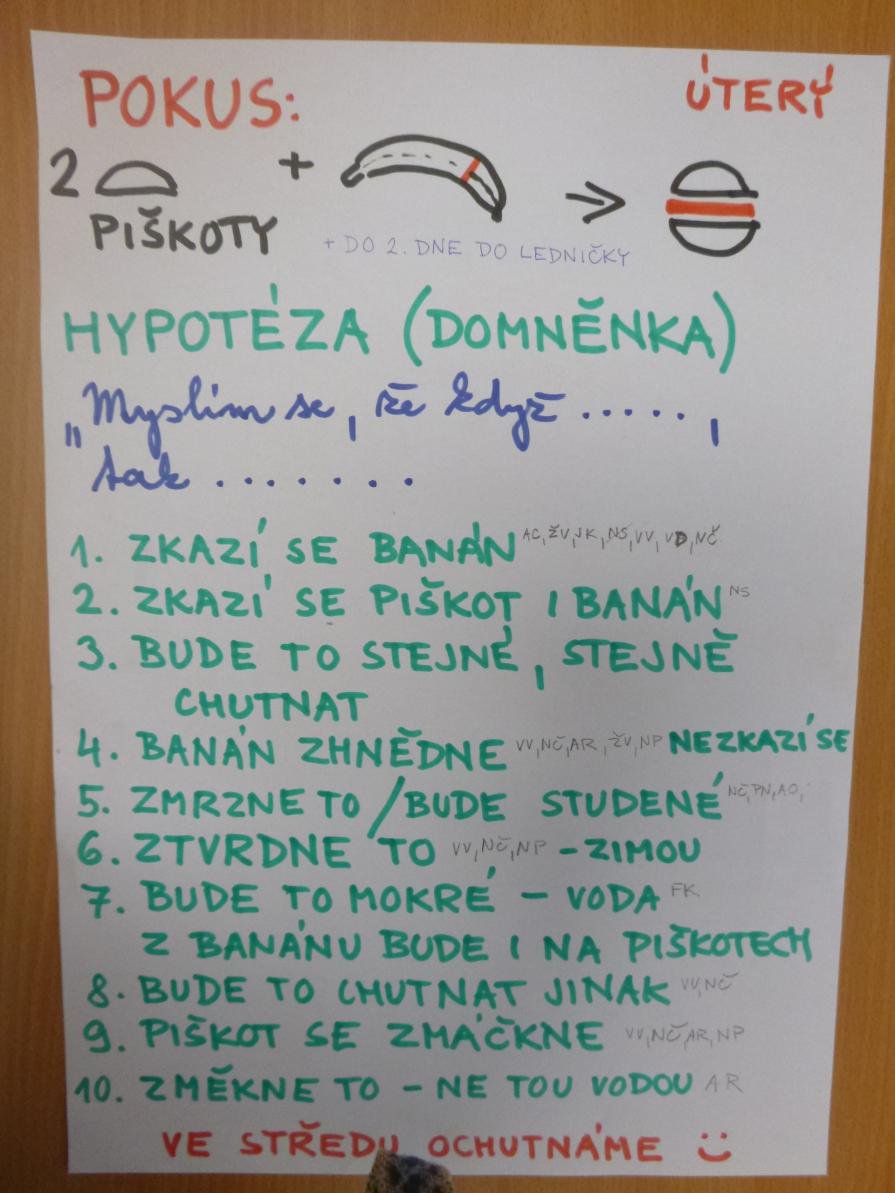 POKUS: ÚTERÝ
2 + →
PIŠKOTY
+ DO 2. DNE DO LEDNIČKY
HYPOTÉZA (DOMNĚNKA)
„Myslím se, že když .....,
tak .......
1. ZKAZÍ SE BANÁN AC, ŽV, JK, NS, VV, VD, NČ
2. ZKAZÍ SE PIŠKOT I BANÁN NS
3. BUDE TO STEJNÉ, STEJNĚ
CHUTNAT
4. BANÁN ZHNĚDNE VV, NČ, AR, ŽV, NP NEZKAZÍ SE
5. ZMRZNE TO / BUDE STUDENÉ NČ, PN, AO,
6. ZTVRDNE TO VV, NČ, NP - ZIMOU
7. BUDE TO MOKRÉ - VODA FK
Z BANÁNU BUDE I NA PIŠKOTECH
8. BUDE TO CHUTNAT JINAK VV, NČ
9. PIŠKOT SE ZMÁČKNE VV, NČ, AR, NP
10. ZMĚKNE TO - NE TOU VODOU AR
VE STŘEDU OCHUTNÁME :)